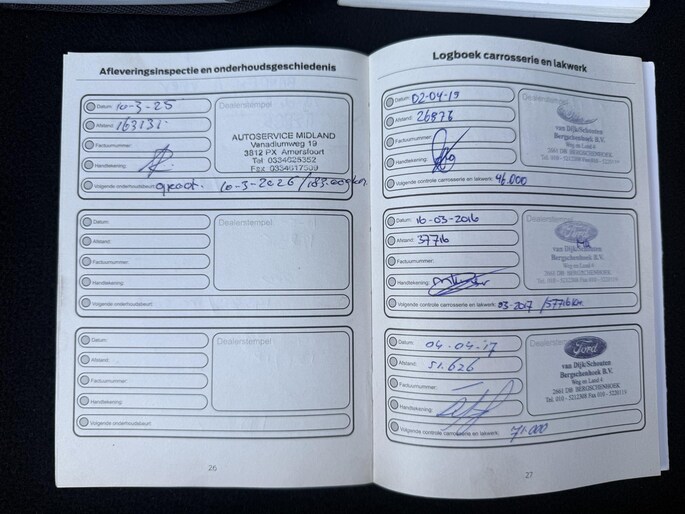 Afleveringsinspectie en onderhoudsgeschiedenis
Datum: 10-3-25
Dealerstempel
Afstand: 163131
AUTOSERVICE MIDLAND
Vanadiumweg 19
3812 PX Amersfoort
Tel 0334625352
Fax 0334617509
Factuurnummer:
Handtekening:
Volgende onderhoudsbeurt: groot. 10-3-2026/183.000km
Datum:
Dealerstempel
Afstand:
Factuurnummer:
Handtekening:
Volgende onderhoudsbeurt:
Datum:
Dealerstempel
Afstand:
Factuurnummer:
Handtekening:
Volgende onderhoudsbeurt:
26
Logboek carrosserie en lakwerk
Datum: 02-04-15
Dealerstempel
Afstand: 26876
van Dijk/Schouten
Bergschenhoek B.V.
Weg en Land 4
2661 DB BERGSCHENHOEK
Factuurnummer:
Handtekening:
Volgende controle carrosserie en lakwerk: 46.000
Datum: 16-03-2016
Dealerstempel
Afstand: 37716
van Dijk/Schouten
Bergschenhoek B.V.
Weg en Land 4
2661 DB BERGSCHENHOEK
Factuurnummer:
Handtekening:
Volgende controle carrosserie en lakwerk: 03-2017 /57716km
Datum: 04-04-17
Dealerstempel
Ford
Afstand: 51.626
van Dijk/Schouten
Bergschenhoek B.V.
Weg en Land 4
2661 DB BERGSCHENHOEK
Tel. 010 - 5212308 Fax 010 - 5220115
Factuurnummer: —
Handtekening:
Volgende controle carrosserie en lakwerk: 71.000
27